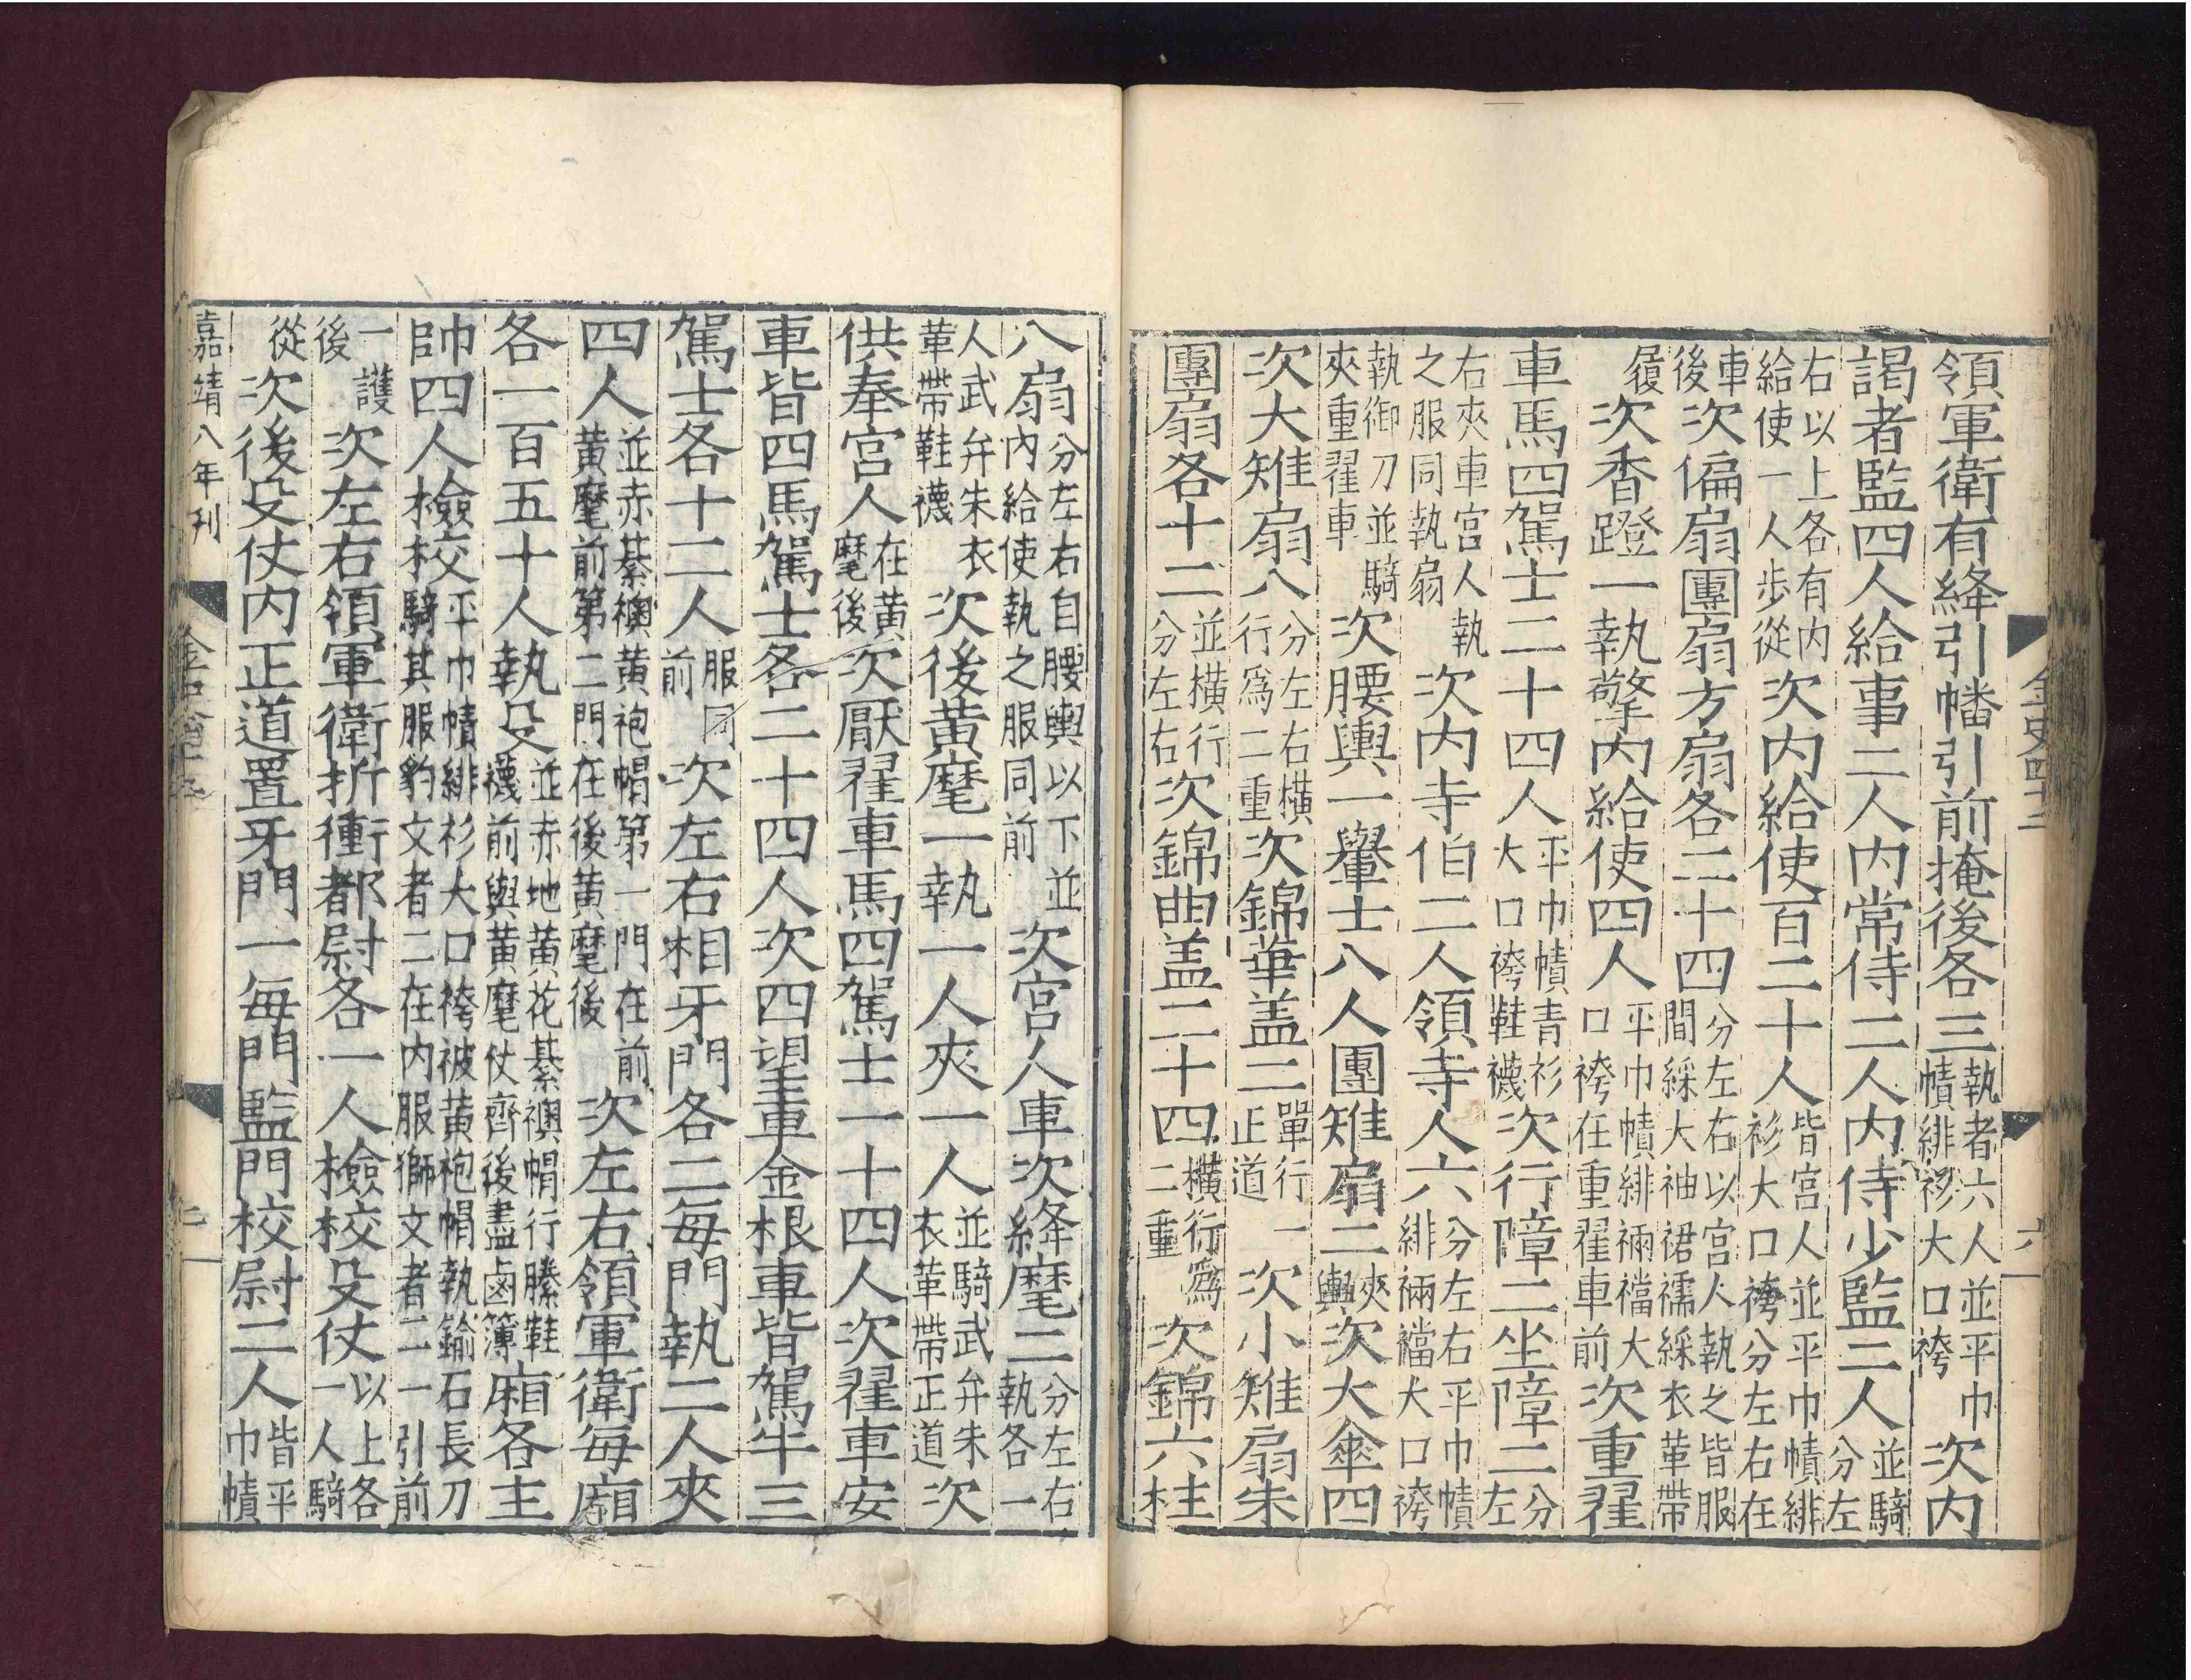 領軍衛有絳引幡引前掩後各三執者六人並平巾幘緋衫大口袴次内
謁者監四人給事二人内常侍二人内侍少監二人並騎分左
右以上各有内給使一人步從次内給使百二十人皆宮人並平巾幘緋衫大口袴分左右在
車後次偏扇團扇方扇各二十四分左右以宮人執之皆服間綵大袖裙襦綵衣革帶
履次香蹬一執擎内給使四人平巾幘緋裲襠大口袴在重翟車前次重翟
車馬四駕士二十四人平巾幘青衫大口袴鞋襪次行障二坐障二分左
右夾車宮人執之服同執扇次内寺伯二人領寺人六分左右平巾幘緋裲襠大口袴
執御刀並騎夾重翟車次腰輿一轝士八人團雉扇二夾輿次大傘四
次大雉扇八分左右橫行爲二重次錦華盖二單行正道次小雉扇朱
團扇各十二並橫行分左右次錦曲盖二十四橫行爲二重次錦六柱
金史四十二
六
八扇分左右自腰輿以下並内給使執之服同前次宮人車次絳麾二分左右執各一
人武弁朱衣革帶鞋襪次後黃麾一執一人夾一人並騎武弁朱衣革帶正道次
供奉宮人在黃麾後次厭翟車馬四駕士一十四人次翟車安
車皆四馬駕士各二十四人次四望車金根車皆駕牛三
駕士各十二人服同前次左右相牙門各二每門執二人夾
四人並赤綦襖黃袍帽第一門在前黃麾前第二門在後黃麾後次左右領軍衛每廂
各一百五十人執殳並赤地黃花綦襖帽行縢鞋襪前輿黃麾仗齊後盡鹵簿廂各主
帥四人檢校平巾幘緋衫大口袴被黃袍帽執鍮石長刀騎其服豹文者二在内服獅文者二一引前
一護後次左右領軍衛折衝都尉各一人檢校殳仗以上各一人騎
從次後殳仗内正道置牙門一每門監門校尉二人皆平巾幘
嘉靖八年刊